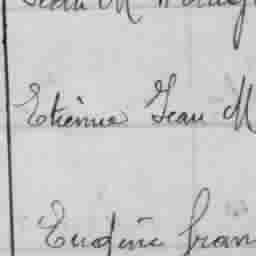 Jean M
Etienne Jean M
Eugène Fran